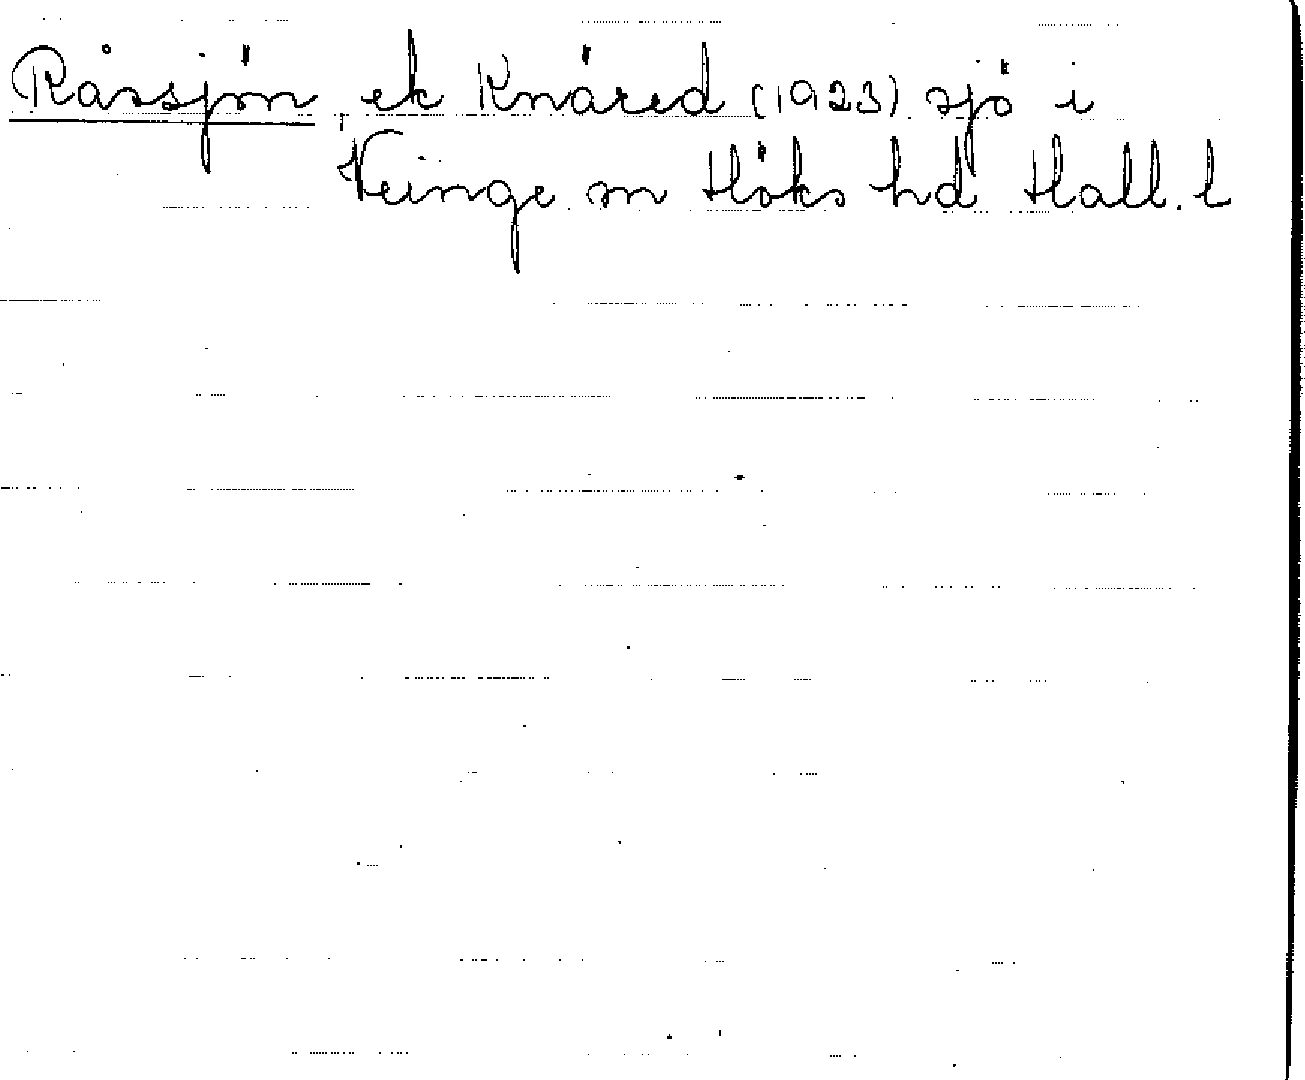 Råssjön ek Knäred (1923) sjö i
Veinge sn Höks hd Hall. l